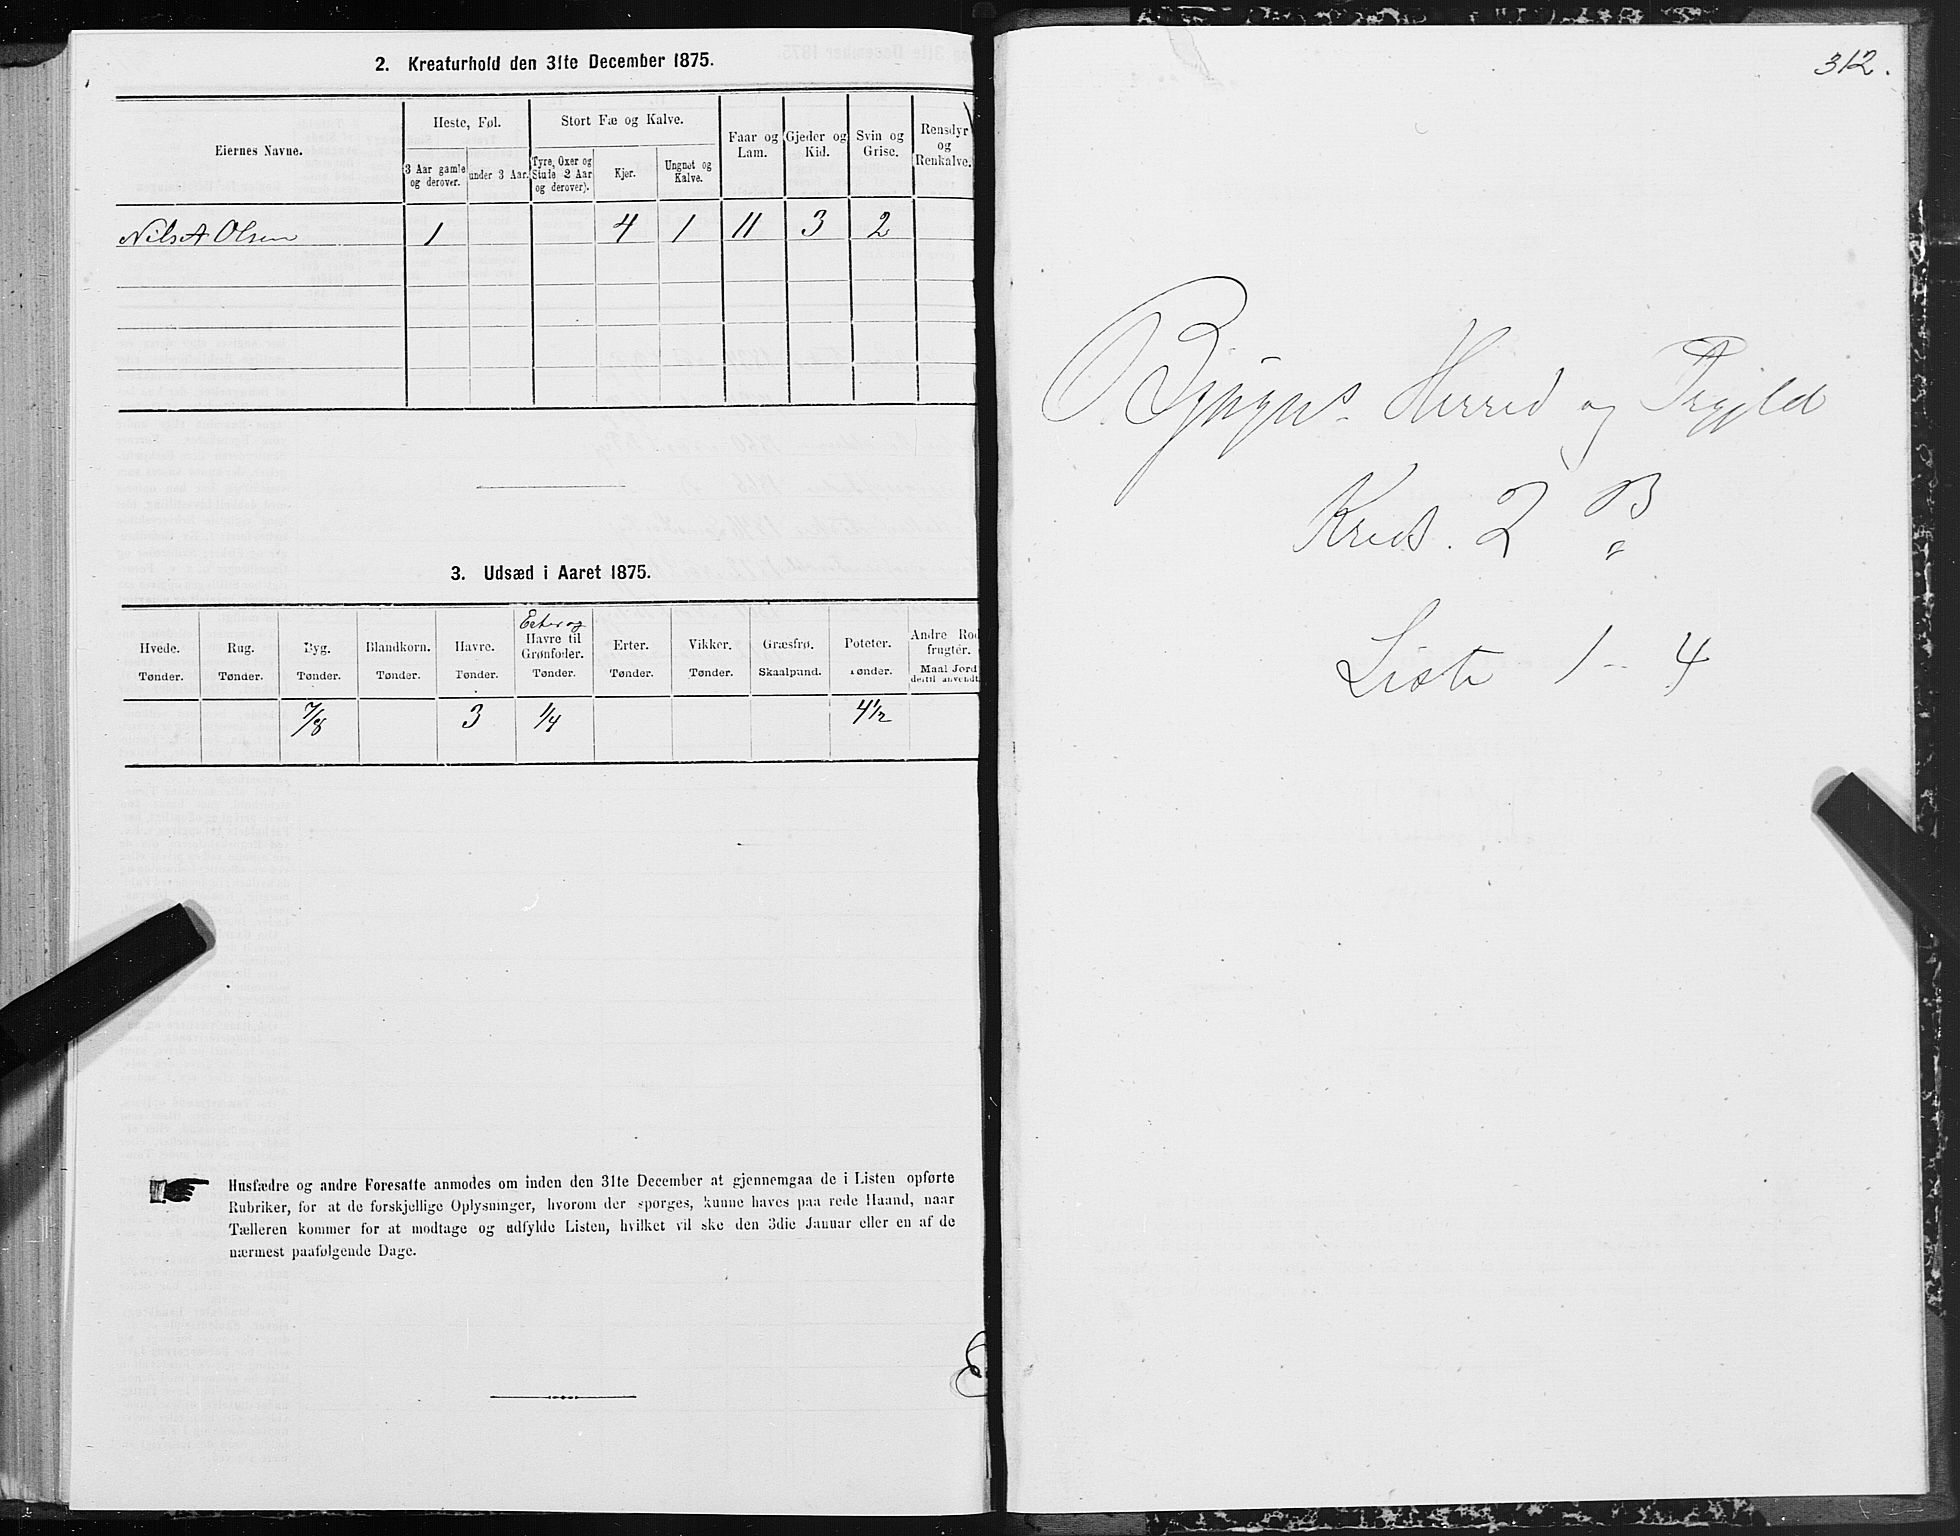 2. Kreaturhold den 31te December 1875.
Eiernes Navne.
Heste, Føl.
Stort Fæ og Kalve.
Faar og Lam.
Gjeder og Kid.
Svin og Grise.
Rensdyr og Renkalve.
3 Aar gamle og derover.
under 3 Aar.
Tyre, Oxer og Stude 2 Aar og derover).
Kjør.
Ungnøt og Kalve.
Nils A Olsen 1 4 1 11 3 2
3. Udsæd i Aaret 1875.
Hvede. Tønder.
Rug. Tønder.
Byg. Tønder.
Blandkorn. Tønder.
Havre. Tønder.
Erter og
Havre til Grønfoder. Tønder.
Erter. Tønder.
Vikker. Tønder.
Græsfrø. Skaalpund.
Poteter. Tønder.
Andre Rod frugter. Maal Jord dertil anvendt.
7/8 3 1/4 4 1/2
Husfædre og andre Foresatte anmodes om inden den 31te December at gjennemgaa de i Listen opførte
Rubriker, for at de forskjellige Oplysninger, hvorom der spørges, kunne haves paa rede Haand, naar
Tælleren kommer for at modtage og udfylde Listen, hvilket vil ske den 3die Januar eller en af de
nærmest paafølgende Dage.
312.
Bjugns Herred og Tngjeld
Kreds. 2 B
Liste 1 - 4